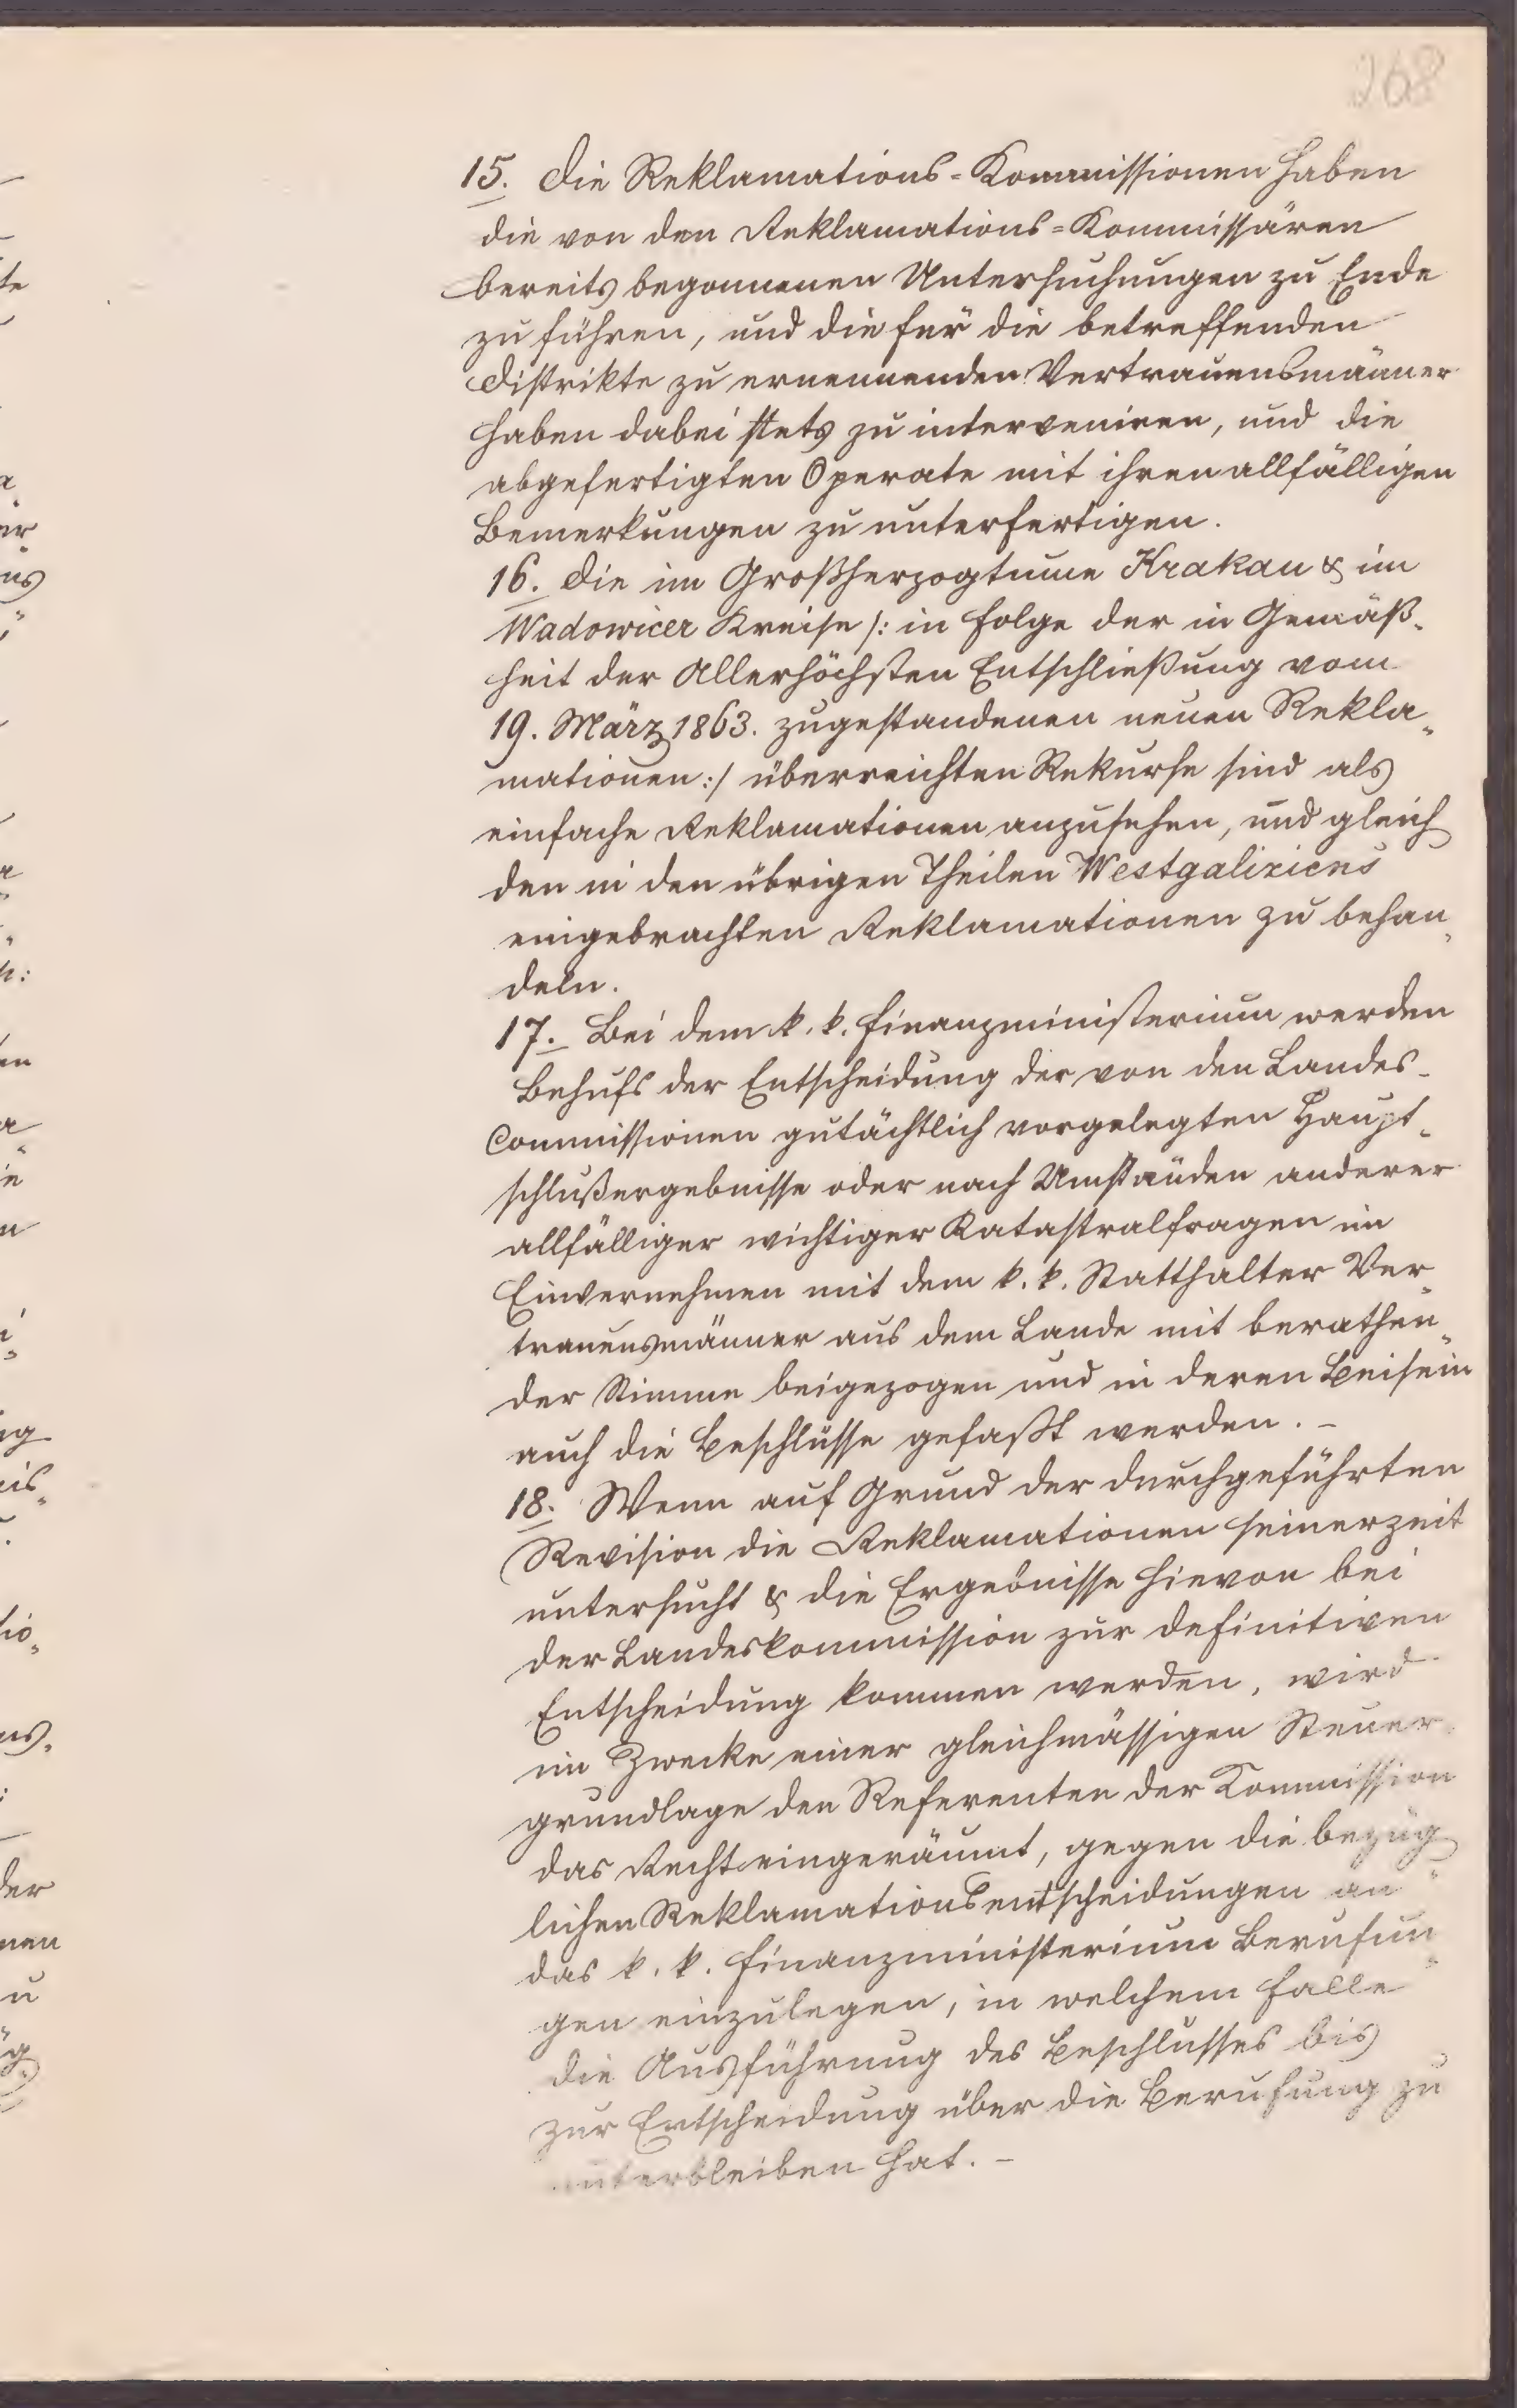 268
15. Die Reklamations=Kommissionen haben
die von den Reklamations=Kommissären
bereits begonnenen Untersuchungen zu Ende
zu führen, und die für die betreffenden
Distrikte zu ernennenden Vertrauensmänner
haben dabei stets zu interveniren, und die
abgefertigten Operate mit ihren allfälligen
Bemerkungen zu unterfertigen.
16. Die im Großherzogtume Krakau & im
Wadowicer Kreise /: in Folge der in Gemäß-
heit der Allerhöchsten Entschließung vom
19. März 1863. zugestandenen neuen Rekla„
mationen :/ überreichten Rekurse sind als
einfache Reklamationen anzusehen, und gleich
den in den übrigen Theilen Westgaliziens
eingebrachten Reklamationen zu behan„
deln.
17. Bei dem k. k. Finanzministerium werden
Behufs der Entscheidung der von den Landes-
Commissionen gutächtlich vorgelegten Haupt-
schlußergebnisse oder nach Umständen anderer
allfälliger wichtiger Katastralfragen im
Einvernehmen mit dem k. k. Statthalter Ver„
trauensmänner aus dem Lande mit berathen„
der Stimme beigezogen und in deren Beisein
auch die Beschlüsse gefaßt werden. –
18. Wenn auf Grund der durchgeführten
Revision die Reklamationen seinerzeit
untersucht & die Ergebnisse hievon bei
der Landeskommission zur definitiven
Entscheidung kommen werden, wird
im Zwecke einer gleichmässigen Steuer„
grundlage den Referenten der Kommission
das Recht eingeräumt, gegen die bezüg„
lichen Reklamationsentscheidungen an
das k. k. Finanzministerium Berufun„
gen einzulegen, in welchem Falle
die Ausführung des Beschlusses bis
zur Entscheidung über die Berufung zu
unterbleiben hat. –